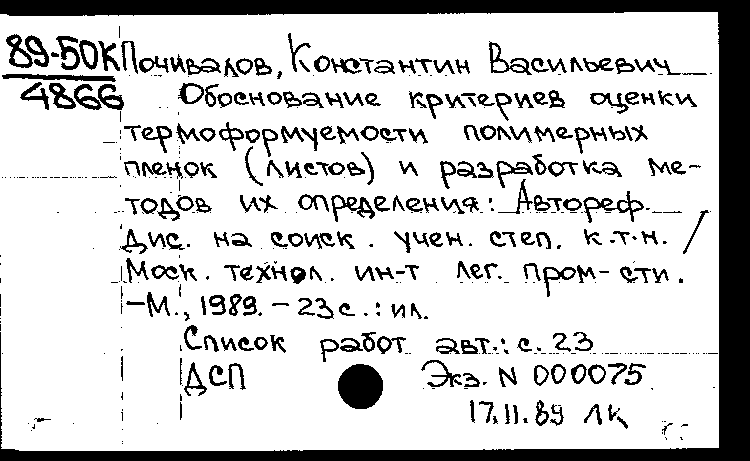 89-50К Почивалов, Константин Васильевич
4866 Обоснование критериев оценки
термоформуемости полимерных
пленок (листов) и разработка ме-
тодов их определения: Автореф.
Дис. на соиск. учен. степ. к.т.н. /
Моск. технол. ин-т лег. пром-сти.
-М., 1989. - 23 с.: ил.
Список работ авт.: с. 23
ДСП Экз. N 000075
17.11.89 ЛК